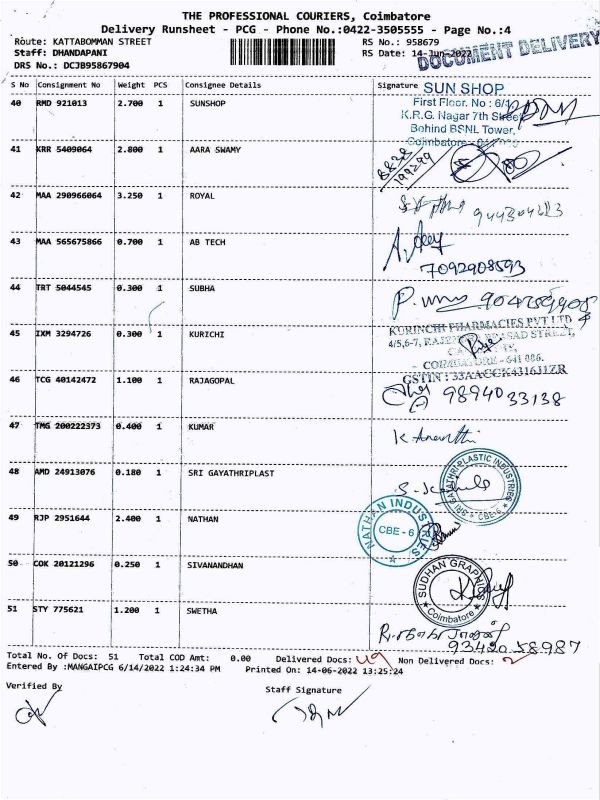 THE PROFESSIONAL COURIERS, Coimbatore
Delivery Runsheet - PCG - Phone No.:0422-3505555 - Page No.:4
Route: KATTABOMMAN STREET
Staff: DHANDAPANI
DRS No.: DCJB95867904
RS No.: 958679
RS Date: 14-Jun-2022
DOCUMENT DELIVERY
S No Consignment No Weight PCS Consignee Details Signature
40 RMD 921013 2.700 1 SUNSHOP
SUN SHOP
First Floor. No : 6/1
K.R.G. Nagar 7th Street
Behind BSNL Tower,
Coimbatore
41 KRR 5409064 2.800 1 AARA SWAMY
42 MAA 290966064 3.250 1 ROYAL
43 MAA 565675866 0.700 1 AB TECH
7092908593
44 TRT 5044545 0.300 1 SUBHA
45 IXM 3294726 0.300 1 KURICHI
KURINCHI PHARMACIES PVT LTD
4/5,6-7,
STREET,
COIMBATORE - 641 006.
GSTIN : 33AACCK4316J1ZR
46 TCG 40142472 1.100 1 RAJAGOPAL
98940 33138
47 TMG 200222373 0.400 1 KUMAR
48 AMD 24913076 0.180 1 SRI GAYATHRIPLAST
SRI GAYATHRI PLASTIC INDUSTRIES
CBE - 6
49 RJP 2951644 2.400 1 NATHAN
NATHAN INDUSTRIES
CBE - 6
50 COK 20121296 0.250 1 SIVANANDHAN
SUDHAN GRAPHICS
Coimbatore
51 STY 775621 1.200 1 SWETHA
9342058987
Total No. Of Docs: 51 Total COD Amt: 0.00 Delivered Docs: 49 Non Delivered Docs: 2
Entered By :MANGAIPCG 6/14/2022 1:24:34 PM Printed On: 14-06-2022 13:25:24
Verified By Staff Signature